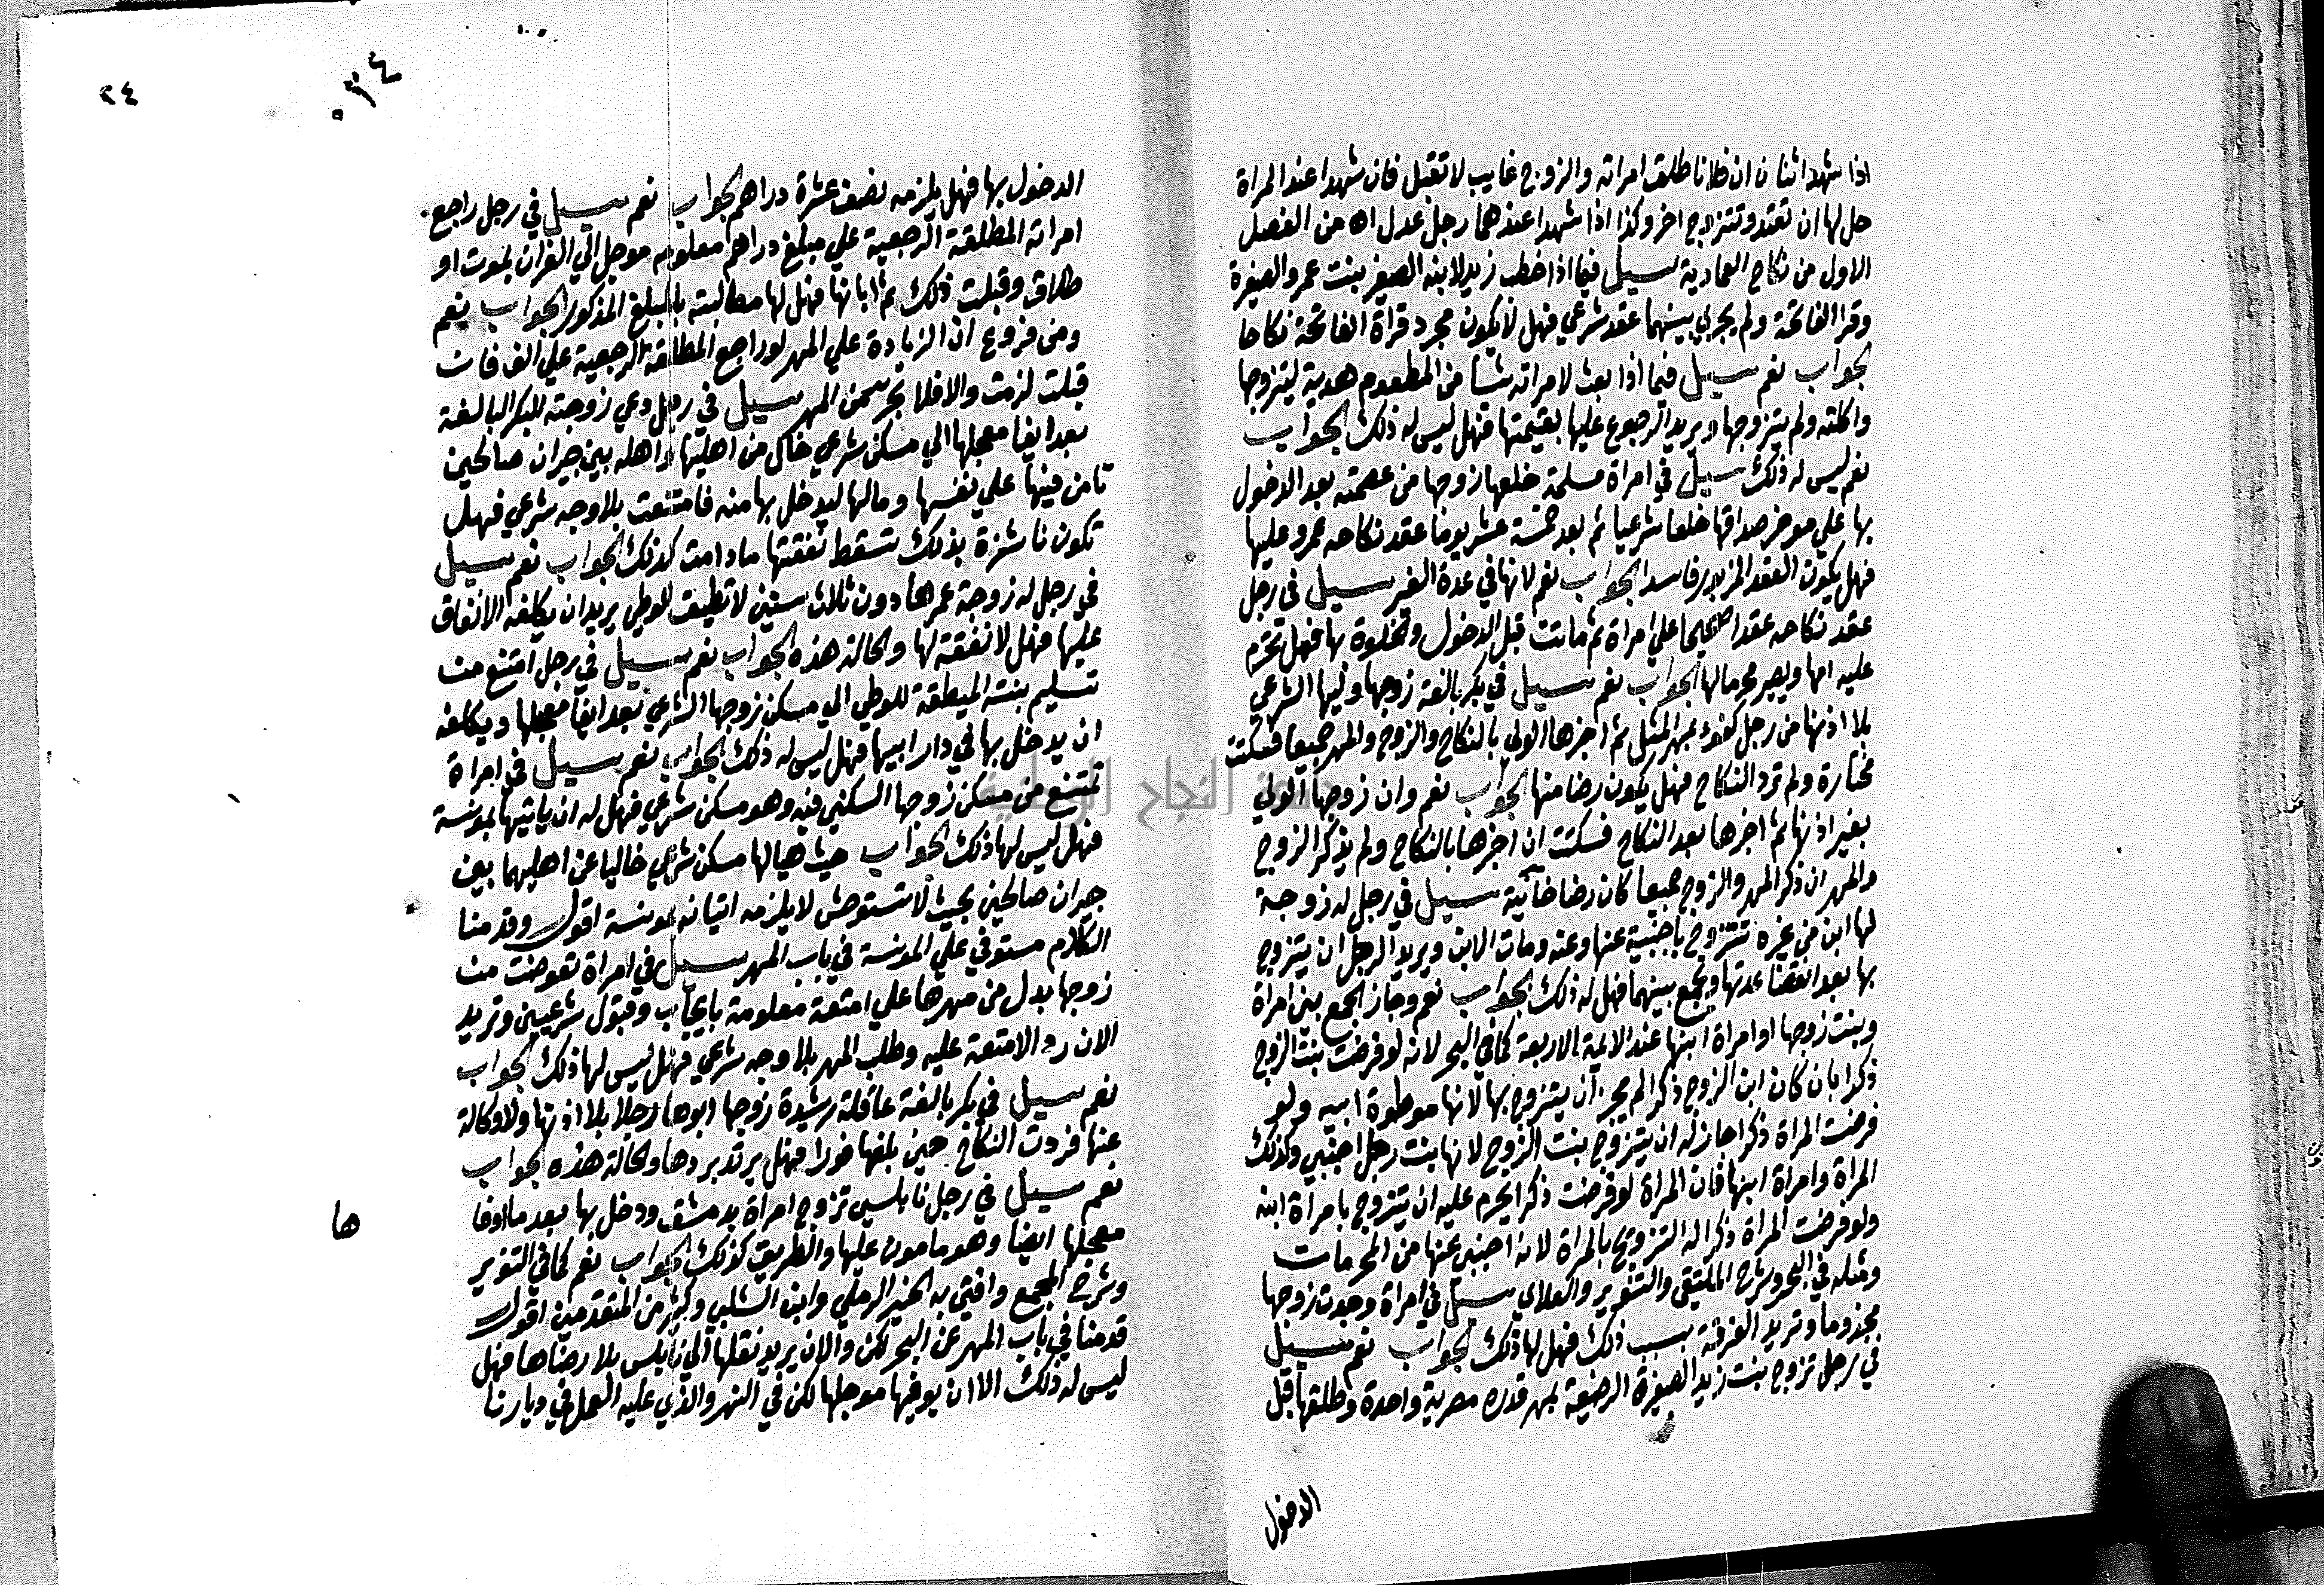 اذا شهد اثنان ان فلانا طلق امراته والزوج غايب لا تقبل فان شهدا عند المراة
حل لها ان تعتد وتتزوج اخر وكذا اذا شهد عندهما رجل عدل اه من الفصل
الاول من نكاح العمادية سيل فيما اذا خطب زيد لابنه الصغير بنت عمرو الصغيرة
وقرا الفاتحة ولم يجري بينهما عقد شرعي فهل لا يكون مجرد قراة الفاتحة نكاحا
الجواب نعم سيل فيما اذا بعث لامراته شيا من المطعوم هدية ليتزوجها
واكلته ولم يتزوجها ويريد الرجوع عليها بقيمتها فهل ليس له ذلك الجواب
نعم ليس له ذلك سيل في امراة مسلمة خلعها زوجها من عصمته بعد الدخول
بها علي موخر صداقها خلعا شرعيا ثم بعد خمسة عشر يوما عقد نكاحه عمرو عليها
فهل يكون العقد المزبور فاسدا الجواب نعم لانها في عدة الغير سيل في رجل
عقد نكاحه عقدا صحيحا علي امراة ثم ماتت قبل الدخول والخلوة بها فهل تحرم
عليه امها ويصير محرما لها الجواب نعم سيل في بكر بالغة زوجها وليها الشرعي
بلا اذنها من رجل كفوء بمهر المثل ثم اخبرها الولي بالنكاح والزوج والمهر جميعا فسكتت
مختارة ولم ترد النكاح فهل يكون رضا منها الجواب نعم وان زوجها الولي
بغير اذنها ثم اخبرها بعد النكاح فسكتت ان اخبرها بالنكاح ولم يذكر الزوج
والمهر ان ذكر المهر والزوج جميعا كان رضا خانية سيل في رجل له زوجة
لها ابن من غيره تتزوج باجنبية عنها وعنه ومات الابن ويريد الرجل ان يتزوج
بها بعد انقضا عدتها ويجمع بينهما فهل له ذلك الجواب نعم وجاز الجمع بين امراة
وبنت زوجها او امراة ابنها عند الايمة الاربعة كما في البحر لانه لو فرضت بنت الزوج
ذكرا بان كان ابن الزوج ذكرا لم يجز ان يتزوج بها لانها موطوة ابيه ولو
فرضت المراة ذكرا جاز له ان يتزوج بنت الزوج لانها بنت رجل اجنبي وكذلك
المراة وامراة ابنها فان المراة لو فرضت ذكرا يحرم عليه ان يتزوج بامراة ابنه
ولو فرضت المراة ذكرا له التزوج بالمراة لانه اجنبي عنها من المحرمات
ومثله في البحر وشرح الملتقي والتنوير والعلاي سيل في امراة وجدت زوجها
مجذوما وتريد الفرقة بسبب ذلك فهل لها ذلك الجواب نعم سيل
في رجل تزوج بنت زيد الصغيرة الرضيعة بمهر قدره مصرية واحدة وطلقها قبل
الدخول
٢٤
الدخول بها فهل يلزمه نصف عشرة دراهم الجواب نعم سيل في رجل راجع
امراته المطلقة الرجعية علي مبلغ دراهم معلوم موجل الي الفراق بموت او
طلاق وقبلت ذلك ثم ابانها فهل لها مطالبته بالمبلغ المذكور الجواب نعم
ومن فروع ان الزيادة علي المهر لو راجع المطلقة الرجعية علي الف فان
قبلت لزمت والا فلا بحر من المهر سيل في رجل دعي زوجته البكر البالغة
بعد ايفا معجلها الي مسكن شرعي خال من اهليها واهله بين جيران صالحين
تامن فيها علي نفسها ومالها ليدخل بها منه فامتنعت بلا وجه شرعي فهل
تكون ناشزة بذلك تسقط نفقتها ما دامت كذلك الجواب نعم سيل
في رجل له زوجة عمرها دون ثلاث سنين لا تطيق للوطي يريدان يكلفه الانفاق
عليها فهل لا نفقة لها والحالة هذه الجواب نعم سيل في رجل امتنع من
تسليم بنته المطيقة للوطي الي مسكن زوجها الشرعي بعد ايفا معجلها ويكلفه
ان يدخل بها في دار ابيها فهل ليس له ذلك الجواب نعم سيل في امراة
تمتنع من مسكن زوجها السكني فيه وهو مسكن شرعي فهل له ان ياتيها بمونسة
فهل ليس لها ذلك الجواب حيث هيا لها مسكن شرعي خاليا عن اهليهما بين
جيران صالحين بحيث لا تستوحش لا يلزمه اتيانه بمونسة اقول وقدمنا
الكلام مستوفي علي المونسة في باب المهر سيل في امراة تعوضت من
زوجها بدل من مهرها علي امتعة معلومة بايجاب وقبول شرعيين وتريد
الان رد الامتعة عليه وطلب المهر بلا وجه شرعي فهل ليس لها ذلك الجواب
نعم سيل في بكر بالغة عاقلة رشيدة زوجها ابوها رجلا بلا اذنها ولا وكالة
عنها فردت النكاح حين بلغها فورا فهل يرتد بردها والحالة هذه الجواب
نعم سيل في رجل نابلسي تزوج امراة بدمشق ودخل بها بعد ما اوفا
ها
معجلها ايضا وهو مامون عليها والطريق كذلك الجواب نعم كما في التنوير
وشرح المجمع وافتي به الخير الرملي وابن الشلبي وكثير من المتقدمين اقول
قدمنا في باب المهر عن البحر لكن والان يريد نقلها الي نابلس بلا رضاها فهل
ليس له ذلك الا ان يوفيها موجلها لكن في النهر والذي عليه العمل في ديارنا